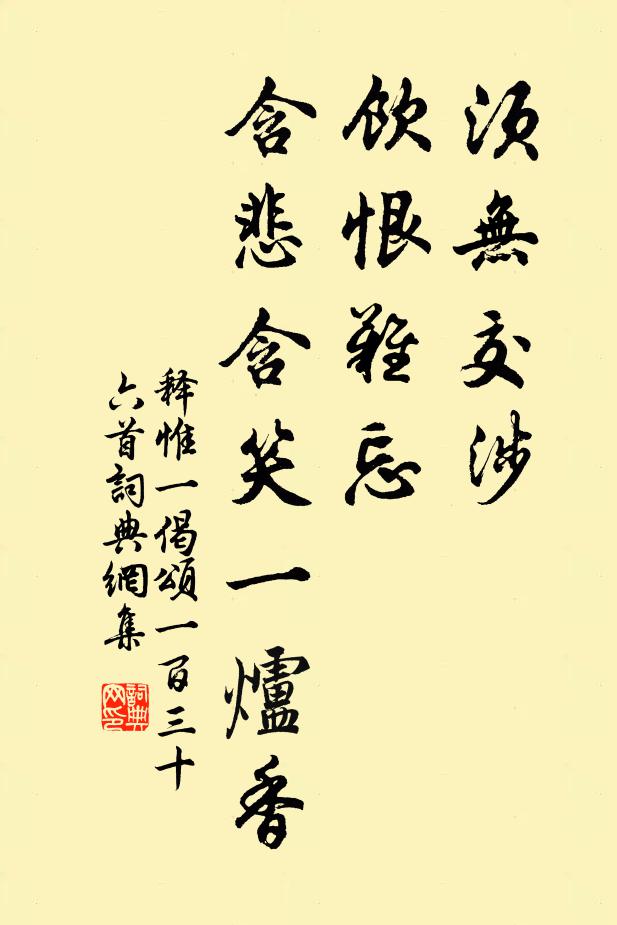 須無交涉
飲恨難忘
含悲含笑一爐香
释惟一偈頌一百三十
六首詞典網集
詞典
网印